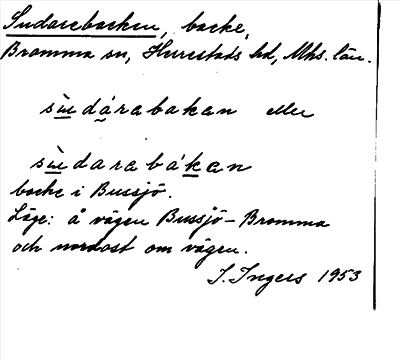 Sudarebacken, backe,
Bromma sn, Herrestads hd, Mhs. län.
sùdárabakan eller
sùdarabákan
backe i Bussjö.
Läge: å vägen Bussjö-Bromma
och nordost om vägen.
I. Ingers 1953